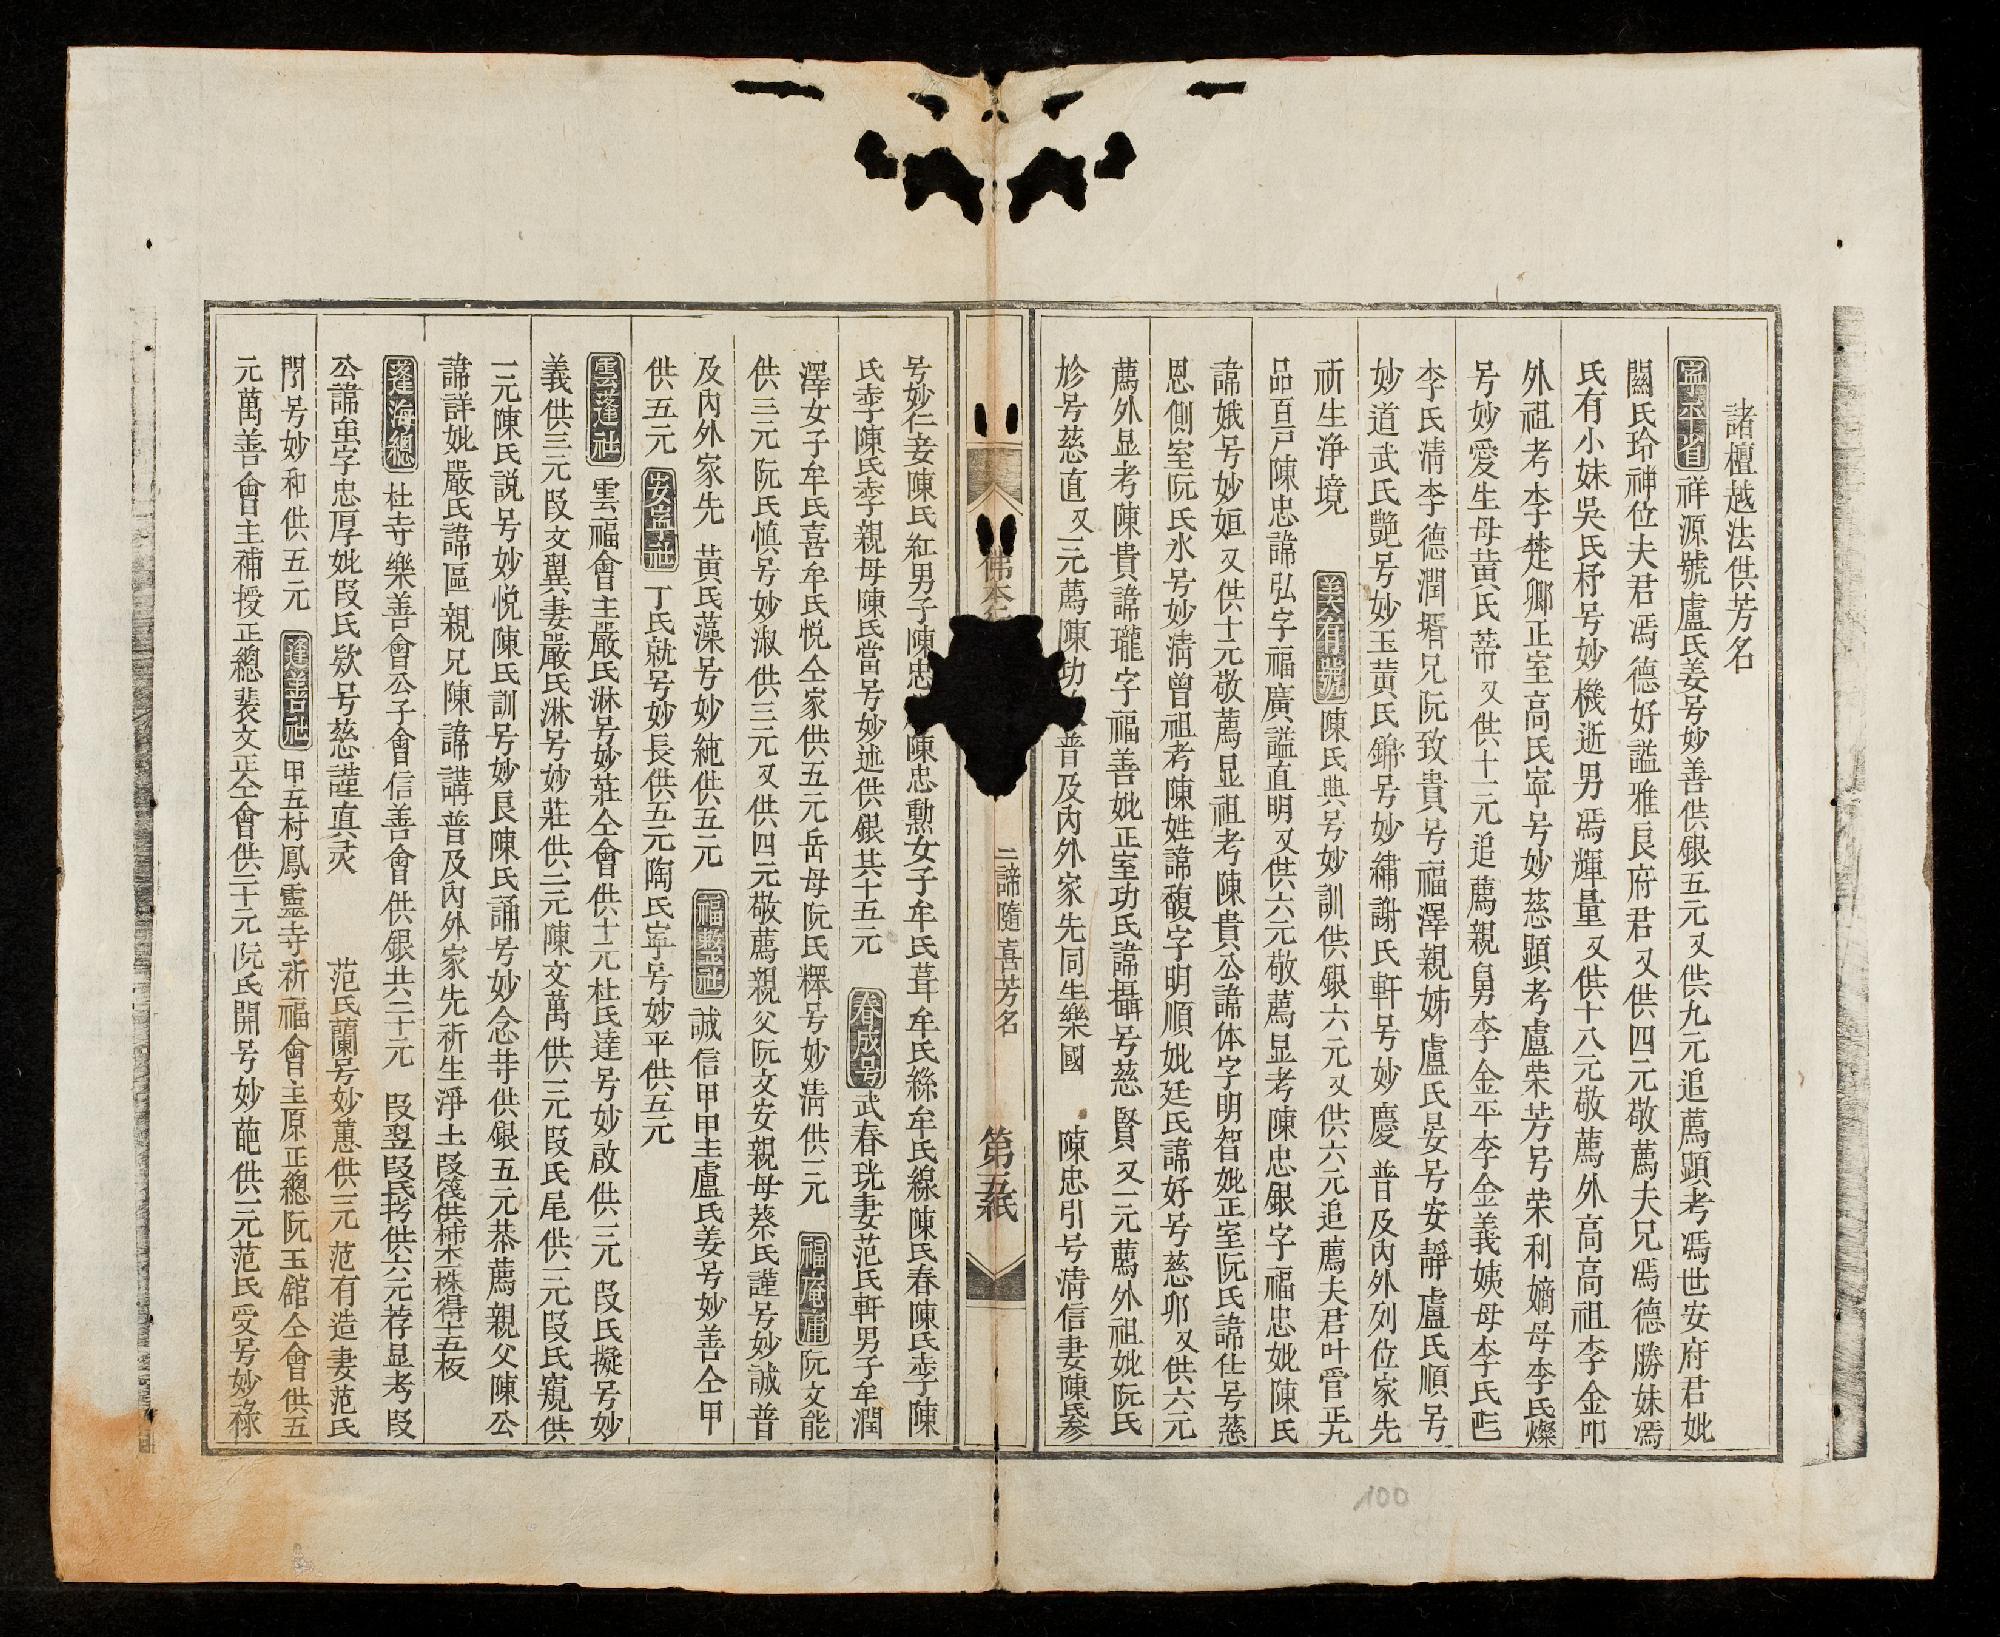 諸檀越法供芳名
寧平省 祥源號盧氏姜号妙善供銀五元又供九元追薦顕考馮世安府君妣
闗氏玲神位夫君馮德好謚雅良府君又供四元敬薦夫兄馮德勝妹馮
氏有小妹吳氏杼号妙機逝男馮輝量又供十八元敬薦外高高祖李金
外祖考李楚卿正室高氏寧号妙慈顕考盧荣芳号荣利嫡母李氏燦
号妙愛生母黃氏蒂又供十二元追薦親舅李金平李金義姨母李氏
李氏清李德潤壻兄阮致貴号福澤親姊盧氏晏号安靜盧氏順号
妙道武氏艷号妙玉黃氏錦号妙繡謝氏軒号妙慶普及内外列位家先
祈生浄境 美有號 陳氏興号妙訓供銀六元又供六元追薦夫君叶管
品百戸陳忠諱弘字福廣謚直明又供六元敬薦显考陳忠銀字福忠妣陳氏
諱娥号妙姮又供十元敬薦显祖考陳貴公諱体字明智妣正室阮氏諱仕号慈
恩側室阮氏氷号妙清曾祖考陳姓諱馥字明順妣廷氏諱好号慈又供六元
薦外显考陳貴諱瓏字福善妣正室功氏諱攝号慈賢又二元薦外祖妣阮氏
号慈直又二元薦陳功普及内外家先同生樂國 陳忠引号清信妻陳氏参
佛本 二諦隨喜芳名 第五紙
号妙仁妾陳氏紅男子陳忠陳忠勲女子牟氏葺牟氏絲牟氏線陳氏春陳氏李陳
氏李陳氏李親母陳氏當号妙述供銀共十五元 春成号 武春珖妻范氏軒男子牟潤
澤女子牟氏喜牟氏悦仝家供五元岳母阮氏檡号妙清供二元 福庵甫 阮文能
供三元阮氏慎号妙淑供三元又供四元敬薦親父阮文安親母蔡氏謹号妙誠普
及内外家先 黃氏藻号妙純供五元 福整社 誠信甲甲主盧氏姜号妙善仝甲
供五元 安寧社 丁氏就号妙長供五元陶氏寧号妙平供五元
雲蓬社 雲福會主嚴氏淋号妙莊仝會供十元杜氏達号妙啟供三元段氏擬号妙
義供三元段文翼妻嚴氏淋号妙莊供二元陳文萬供三元段氏尾供二元段氏窺供
一元陳氏説号妙悦陳氏訓号妙良陳氏誦号妙念寺供銀五元恭薦親父陳公
諱詳妣嚴氏諱區親兄陳諱講普及内外家先祈生淨土段筏供柿木一株得十五板
蓬海總 杜寺樂善會公子會信善會供銀共二十元 段翌段氏持供六元荐显考段
公諱虽字忠厚妣段氏欵号慈謹真灵 范氏蘭号妙蕙供三元范有造妻范氏
門号妙和供五元 逢善社 甲五村鳳靈寺祈福會主原正總阮玉舘仝會供五
元萬善會主補授正總裴文正仝會供二十元阮氏開号妙葩供二元范氏受号妙祿
100